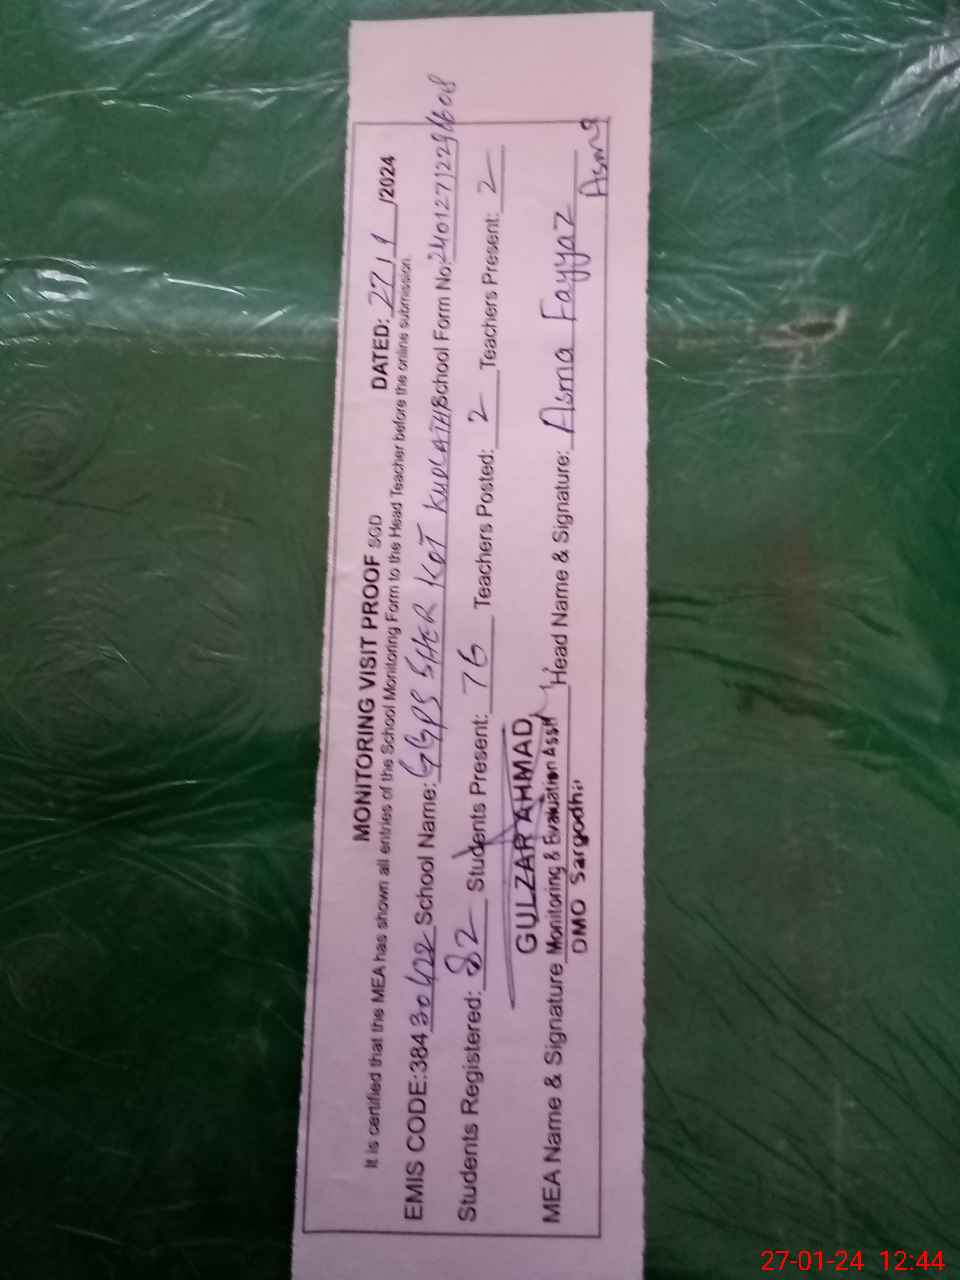 MONITORING VISIT PROOF SGD DATED: 27/1/2024
It is certified that the MEA has shown all entries of the School Monitoring Form to the Head Teacher before the online submission.
EMIS CODE:38430422 School Name: GGPS SHER KOT School Form No:
Students Registered: 82 Students Present: 76 Teachers Posted: 2 Teachers Present: 2
GULZAR AHMAD
MEA Name & Signature Monitoring & Evaluation Asstt Head Name & Signature: Asma Fayyaz
DMO Sargodha
Asma
27-01-24 12:44